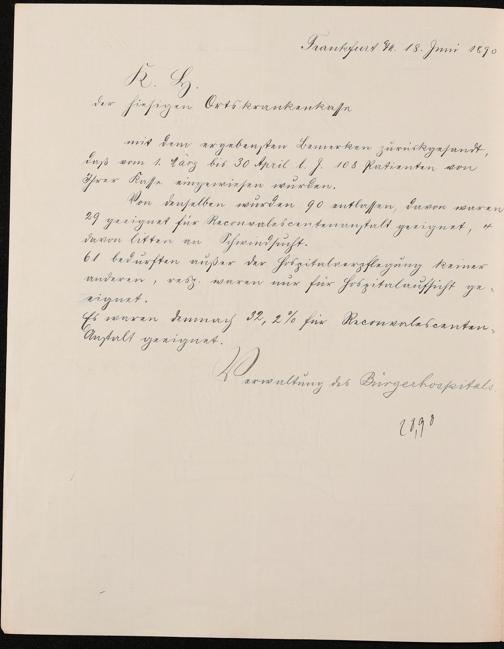 Frankfurt a/M. 18. Juni 1890
K. H.
der hiesigen Ortskrankenkasse
mit dem ergebensten Bemerken zurückgesandt,
daß vom 1. März bis 30 April l. J. 108 Patienten von
Ihrer Kasse eingewiesen wurden.
Von denselben wurden 90 entlassen, davon waren
29 geeignet für Reconvalescentenanstalt geeignet, 4
davon litten an Schwindsucht.
61 bedurften außer der Hospitalverpflegung keiner
anderen, resp. waren nur für Hospitalaufsicht ge-
eignet.
Es waren demnach 32,2% für Reconvalescenten-
Anstalt geeignet.
Verwaltung des Bürgerhospitals